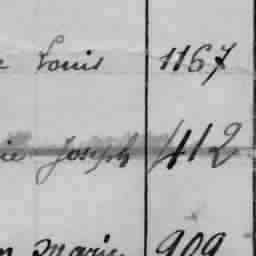 Louis 1167
Joseph 412
Marie 909